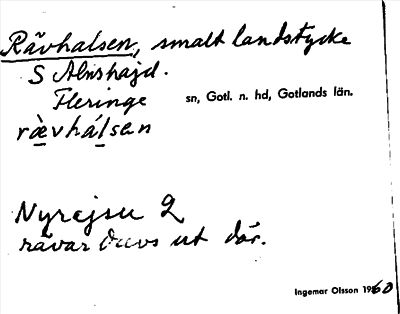 Rävhalsen, smalt landstycke
S Alnshajd.
Fleringe sn, Gotl. n. hd, Gotlands län.
rä̀vhálsen
Nyrejsu 2
rävar drevs ut där.
Ingemar Olsson 1960